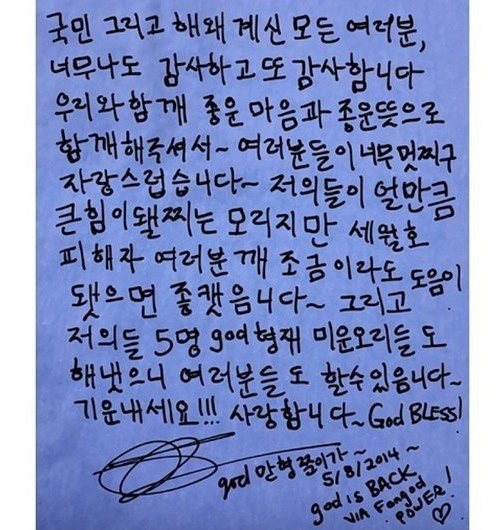 국민 그리고 해왜 계신 모든 여러분,
너무나도 감사하고 또 감사합니다
우리와 함깨 종운 마음과 종운뜻으로
함깨해주셔서~ 여러분들이 너무 멋찌구
자랑스럽습니다~ 저의들이 얼만큼
큰 힘이 됄찌는 모리지만 세월호
피해자 여러분깨 조금이라도 도음이
됏으면 좋캣읍니다~ 그리고
저의들 5명 god 형재 미운오리들도
해냇으니 여러분들도 할수있음니다~
기운내세요!!! 사랑합니다~ God BLESS!
god 만형 쭌이가~
5/8/2014~
god is BACK
VIA Fangod
POWER! ♡